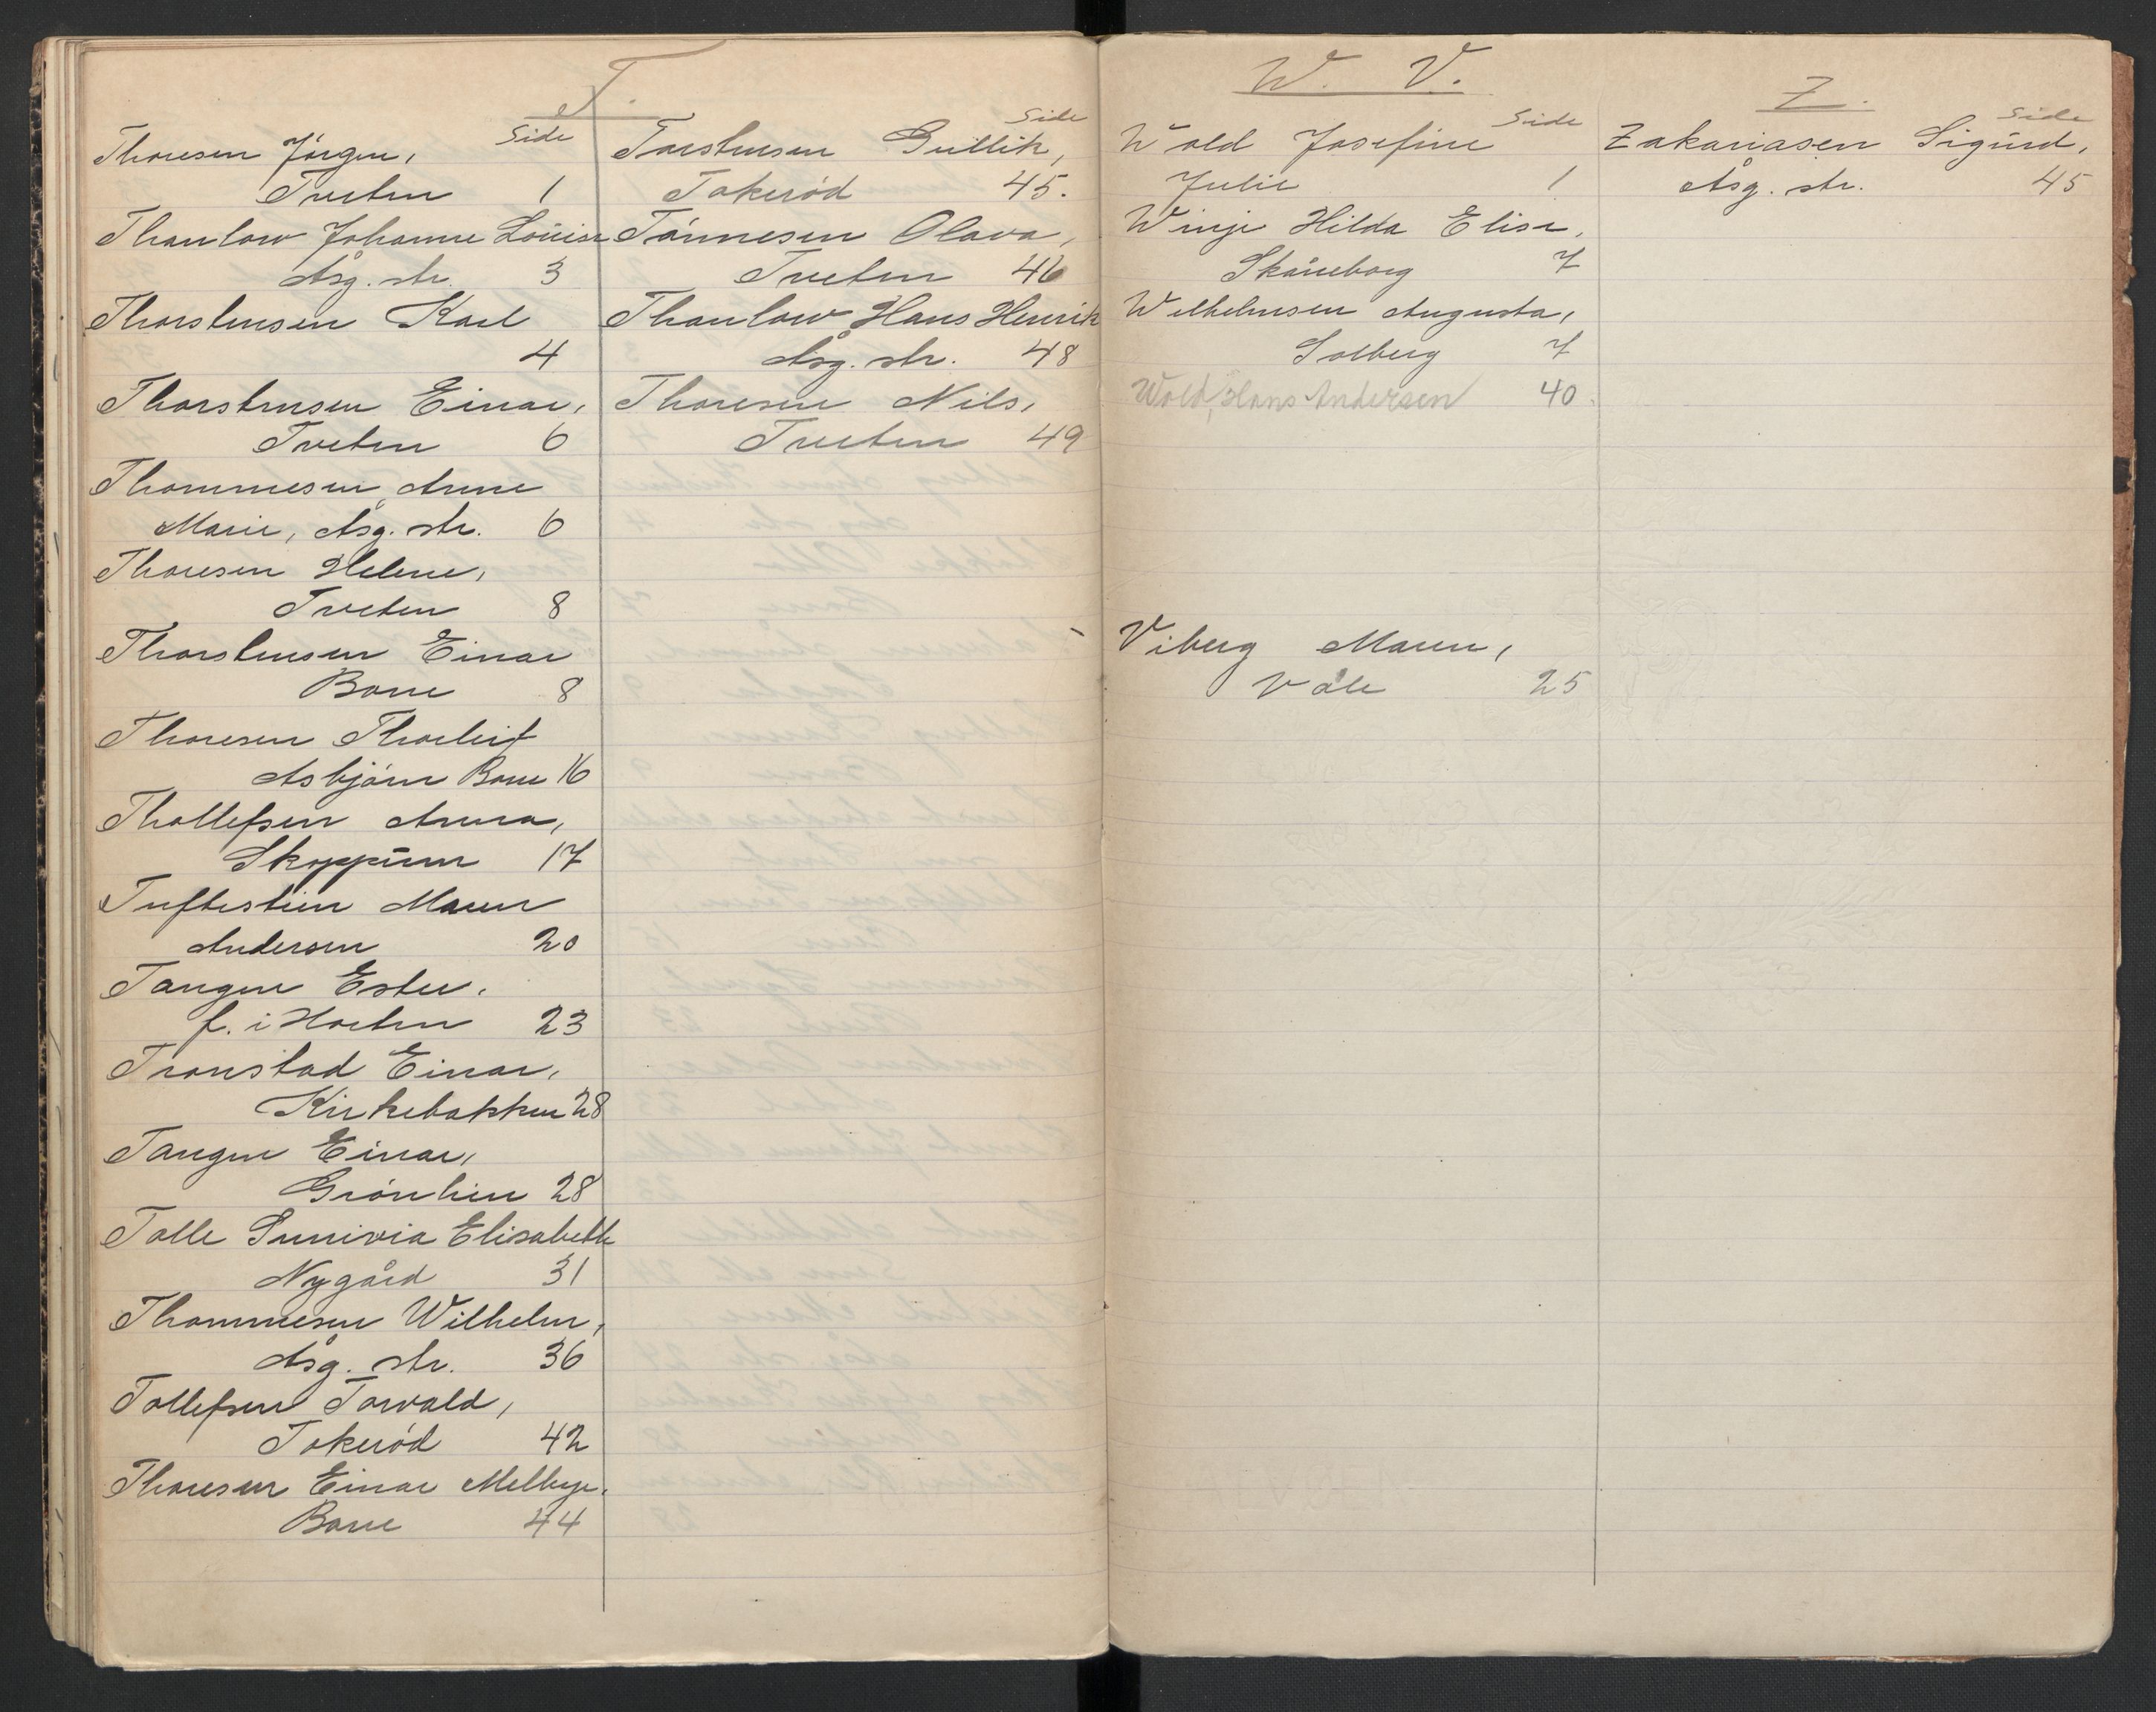 T.
Side
Thoresen Jörgen,
Tveten 1
Thaulow Johanne Louise
Åsg. str. 3
Thorstensen Karl
4
Thorstensen Einar,
Tveten 6
Thommesen Anne
Marie, Åsg. str. 6
Thoresen Helene,
Tveten 8
Thorstensen Einar
Borre 8
Thoresen Thorleif
Asbjörn Borre 16
Thollefsen Anna,
Skoppum 17
Tuftestein Maren
Andersen 20
Tangen Ester,
f. i Horten 23
Tronstad Einar,
Kirkebakken 28
Tangen Einar,
Grönlien 28
Tolle Sunivia Elisabeth
Nygård 31
Thommesen Wilhelm,
Åsg. str. 36
Tollefsen Torvald,
Tokeröd 42
Thoresen Einar Melbye,
Borre 44
Side
Torstensen Gullik,
Tokeröd 45.
Tönnesen Olava,
Tveten 46
Thaulow Hans Henrik
Åsg. str. 48
Thoresen Nils,
Tveten 49
W. V.
Side
Wold Josefine
Julie 1
Winje Hilda Elise,
Skåneborg 7
Wilhelmsen Augusta,
Solberg 7
Wold, Hans Andersen 40.
Viberg Maren,
Våle 25
Z.
Side
Zakariasen Sigurd,
Åsg. str. 45